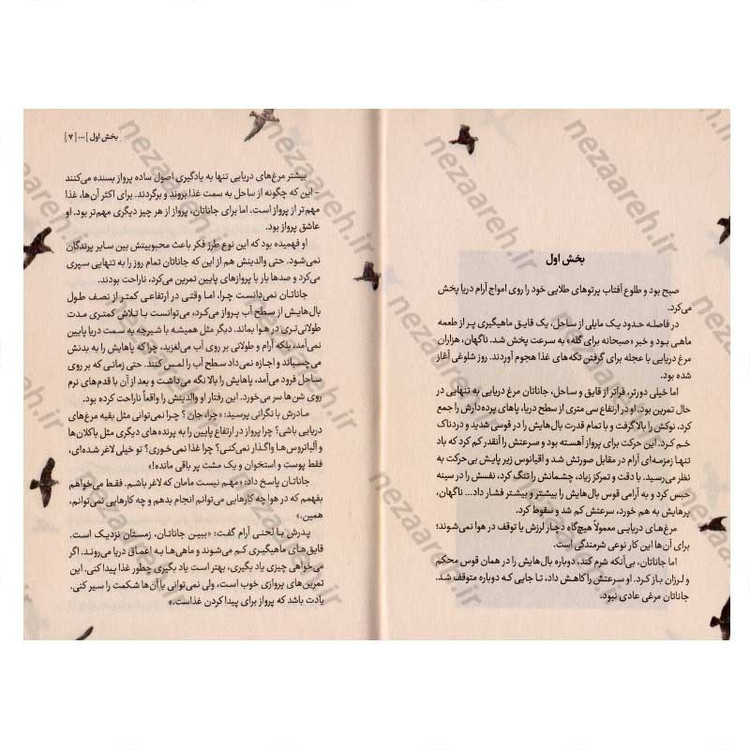 بخش اول
صبح بود و طلوع آفتاب پرتوهای طلایی خود را روی امواج آرام دریا پخش
می‌کرد.
در فاصله حدود یک مایلی از ساحل، یک قایق ماهیگیری پر از طعمه
ماهی بود و خبر «صبحانه برای گله» به سرعت پخش شد. ناگهان، هزاران
مرغ دریایی با عجله برای گرفتن تکه‌های غذا هجوم آوردند. روز شلوغی آغاز
شده بود.
اما خیلی دورتر، فراتر از قایق و ساحل، جاناتان مرغ دریایی به تنهایی در
حال تمرین بود. او در ارتفاع سی متری از سطح دریا، پاهای پرده‌دارش را جمع
کرد، نوکش را بالا گرفت و با تمام قدرت بال‌هایش را در قوسی شدید و دردناک
خم کرد. این حرکت برای پرواز آهسته بود و سرعتش را آنقدر کم کرد که باد
تنها زمزمه‌ای آرام در مقابل صورتش شد و اقیانوس زیر پایش بی‌حرکت به
نظر می‌رسید. با دقت و تمرکز زیاد، چشمانش را تنگ کرد، نفسش را در سینه
حبس کرد و به آرامی قوس بال‌هایش را بیشتر و بیشتر فشار داد... ناگهان،
پرهایش به هم خورد، سرعتش کم شد و سقوط کرد.
مرغ‌های دریایی معمولاً هیچ‌گاه دچار لرزش یا توقف در هوا نمی‌شوند؛
برای آن‌ها این کار نوعی شرمندگی است.
اما جاناتان، بی‌آنکه شرم کند، دوباره بال‌هایش را در همان قوس محکم
و لرزان باز کرد. او سرعتش را کاهش داد، تا جایی که دوباره متوقف شد.
جاناتان مرغی عادی نبود.
بخش اول ]...[ ۷ ]
بیشتر مرغ‌های دریایی تنها به یادگیری اصول ساده پرواز بسنده می‌کنند
- این که چگونه از ساحل به سمت غذا بروند و برگردند. برای اکثر آن‌ها، غذا
مهم‌تر از پرواز است. اما برای جاناتان، پرواز از هر چیز دیگری مهم‌تر بود. او
عاشق پرواز بود.
او فهمیده بود که این نوع طرز فکر باعث محبوبیتش بین سایر پرندگان
نمی‌شود. حتی والدینش هم از این که جاناتان تمام روز را به تنهایی سپری
می‌کرد و صدها بار با پروازهای پایین تمرین می‌کرد، ناراحت بودند.
جاناتان نمی‌دانست چرا، اما وقتی در ارتفاعی کمتر از نصف طول
بال‌هایش از سطح آب پرواز می‌کرد، می‌توانست با تلاش کمتری مدت
طولانی‌تری در هوا بماند. دیگر مثل همیشه با شیرجه به سمت دریا پایین
نمی‌آمد، بلکه آرام و طولانی بر روی آب می‌لغزید، چرا که پاهایش را به بدنش
می‌چسباند و اجازه نمی‌داد سطح آب را لمس کنند. حتی زمانی که بر روی
ساحل فرود می‌آمد، پاهایش را بالا نگه می‌داشت و بعد از آن با قدم‌های نرم
روی شن‌ها سر می‌خورد. این رفتار او والدینش را واقعاً ناراحت کرده بود.
مادرش با نگرانی پرسید: «چرا، جان؟ چرا نمی‌توانی مثل بقیه مرغ‌های
دریایی باشی؟ چرا پرواز در ارتفاع پایین را به پرنده‌های دیگری مثل باکلان‌ها
و آلباتروس‌ها واگذار نمی‌کنی؟ چرا غذا نمی‌خوری؟ تو خیلی لاغر شده‌ای،
فقط پوست و استخوان و یک مشت پر باقی مانده!»
جاناتان پاسخ داد: «مهم نیست مامان که لاغر باشم. فقط می‌خواهم
بفهمم که در هوا چه کارهایی می‌توانم انجام بدهم و چه کارهایی نمی‌توانم،
همین.»
پدرش با لحنی آرام گفت: «ببین جاناتان، زمستان نزدیک است.
قایق‌های ماهیگیری کم می‌شوند و ماهی‌ها به اعماق دریا می‌روند. اگر
می‌خواهی چیزی یاد بگیری، بهتر است یاد بگیری چطور غذا پیدا کنی. این
تمرین‌های پروازی خوب است، ولی نمی‌توانی با آن‌ها شکمت را سیر کنی.
یادت باشد که پرواز برای پیدا کردن غذاست.»
nezaareh.ir
nezaareh.ir
nezaareh.ir
nezaareh.ir
nezaareh.ir
nezaareh.ir